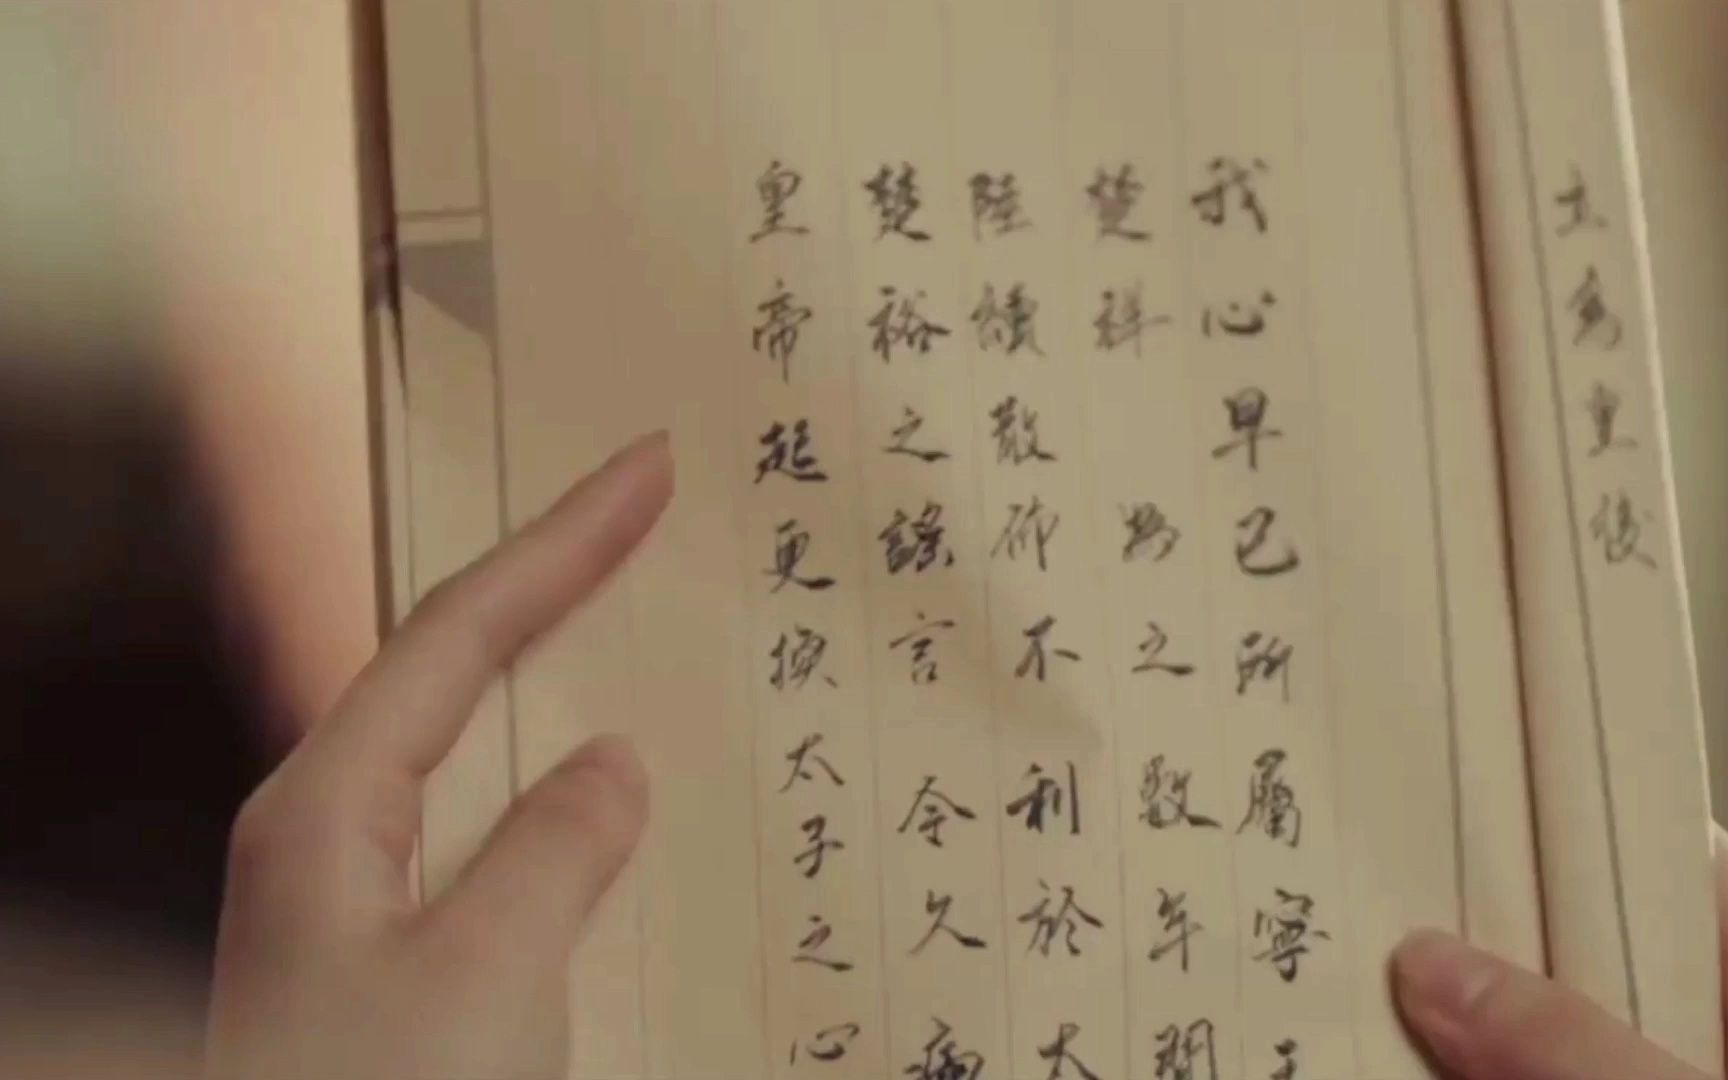 立為皇後
我心早已所屬寧王
楚祥 為之 數年間
陸續散佈不利於太
楚裕之謠言 令久病
皇帝起更換太子之心